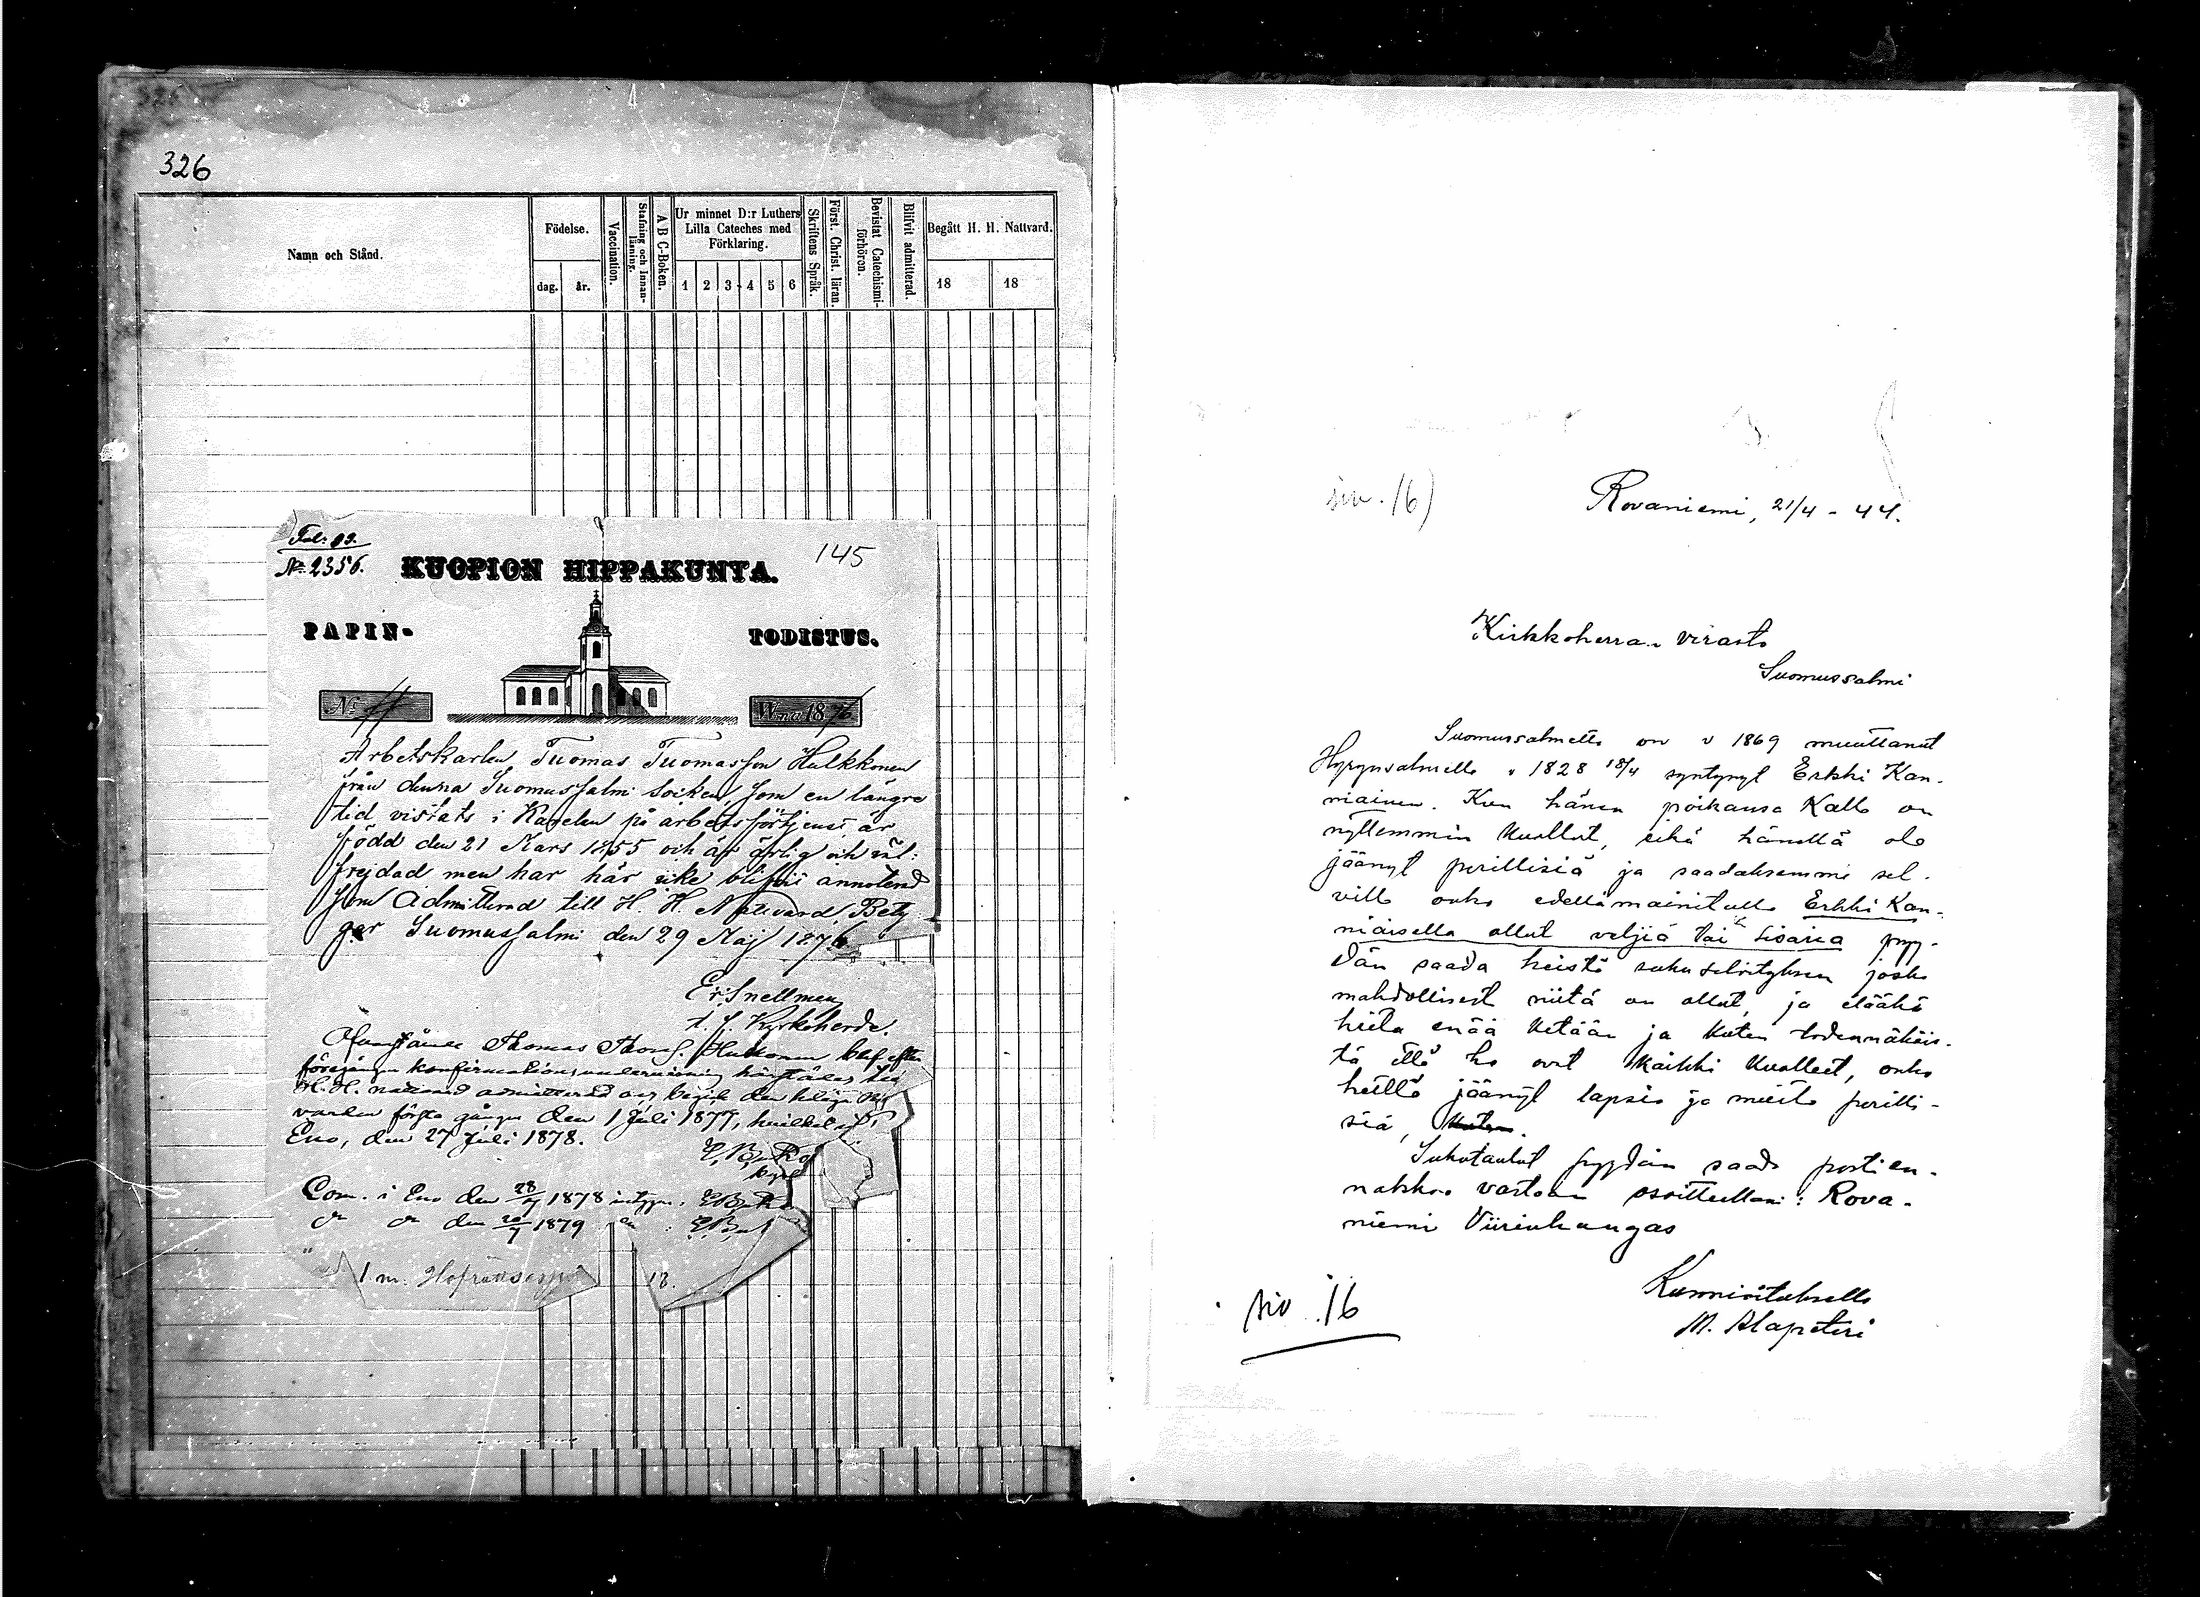 326
Namn och Stånd.
Födelse.
dag.
år.
Vaccination.
Stafning och Innanläsning.
A B C-Boken.
Ur minnet D:r Luthers
Lilla Cateches med
Förklaring.
1 2 3 4 5 6
Skriftens Språk.
Först. Christ. läran.
Bevistat Catechismi-
förhören.
Blifvit admitterad.
Begått H. H. Nattvard.
18 18
Fol: 93.
№ 2356.
145
KUOPION HIPPAKUNTA.
PAPIN-
TODISTUS.
№
Wnna 1876
Arbetskarlen Tuomas Tuomasson Hulkkonen
från denna Suomussalmi socken, som en längre
tid vistats i Karelen på arbetsförtjenst, är
född den 21 Mars 1855 och är ärlig och väl:
frejdad men har här icke blifvit annoterad
som Admitterad till H. H. Nattvard. Bety-
gar Suomussalmi den 29 Maj 1876.
Er. Snellman
t. f. Kyrkoherde.
Thomas Hukkonen har efter
konfirmationsundervisning
H. H. nattvard admitterad och begick den helige
varden första gången den 1 Juli 1877, hvilket
Eno, den 27 Juli 1878.
Com. i Eno den 28/7 1878 intygar
den 20/7 1879
siv. 16)
Rovaniemi, 21/4 - 44.
Kirkkoherran virasto
Suomussalmi
Suomussalmelta on v 1869 muuttanut
Hyrynsalmelle v 1828 18/4 syntynyt Erkki Kan-
niainen. Kun hänen poikansa Kalle on
nyttemmin kuollut, eikä häneltä ole
jäänyt perillisiä ja saadaksemme sel-
ville onko edellämainitulla Erkki Kan-
niaisella ollut veljiä tai sisaria pyy-
dän saada heistä sukuselvityksen josko
mahdollisesti niitä on ollut, ja elääkö
heitä enää ketään ja kuten todennäköis-
tä että he ovat kaikki kuolleet, onko
heiltä jäänyt lapsia ja muita perilli-
siä, kuten.
Sukutaulut pyydän saada postien-
nakkoa vastaan osoitteellani: Rova-
niemi Viirinkangas
Kunnioituksella
M. Alapeteri
siv. 16